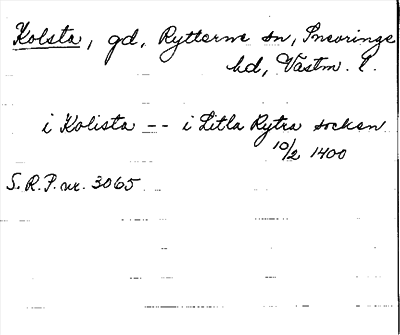 Kolsta, gd, Rytterne sn, Snevringe
hd, Västm. l.
i Kolista -- i Litla Rytra socken
10/2 1400
S.R.P. nr. 3065